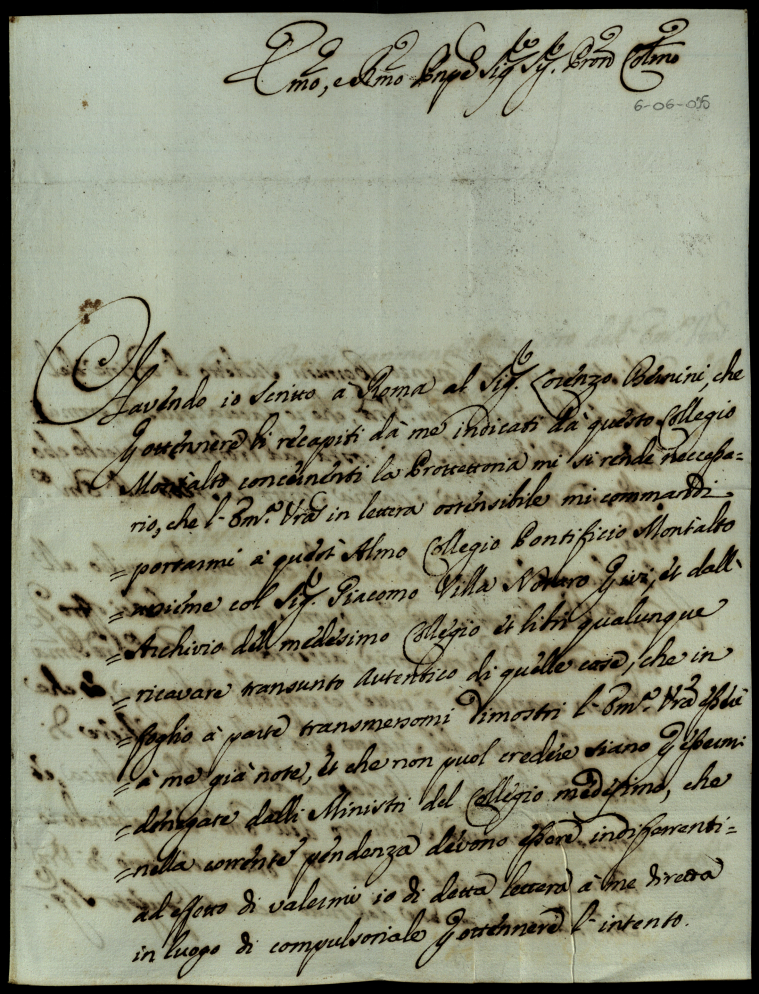 Emo, e Rmo Pnpe Sigre Sigr. Pron Colmo
6-06-035
Havendo io scritto à Roma al Sigr. Lorenzo Bernini, che
P ottennere li recapiti dà me indicati dà questo Collegio
Montalto concernenti la Prottettoria mi si rende neccessa=
rio, che l'Emza Vra in lettera ostensibile mi commandi
=portarmi à quest' Almo Collegio Pontificio Montalto
=unsieme col Sigr. Giacomo Villa Nottaro Quivi, et dall'
=Archivio del medesimo Collegio et libri qualunque
=ricavare transunto Autentico di quelle cose, che in
=foglio à parte transmersomi dimostri l'Emza Vra essere
=à me già note, et che non puol credere siano P essermi
=denegate dalli Ministri del Collegio medesimo, che
=nella corrente pendenza devono essere indifferenti=
ad effetto di valermi io di detta lettera à me diretta
in luogo di compulsoriale P ottennere l'intento.